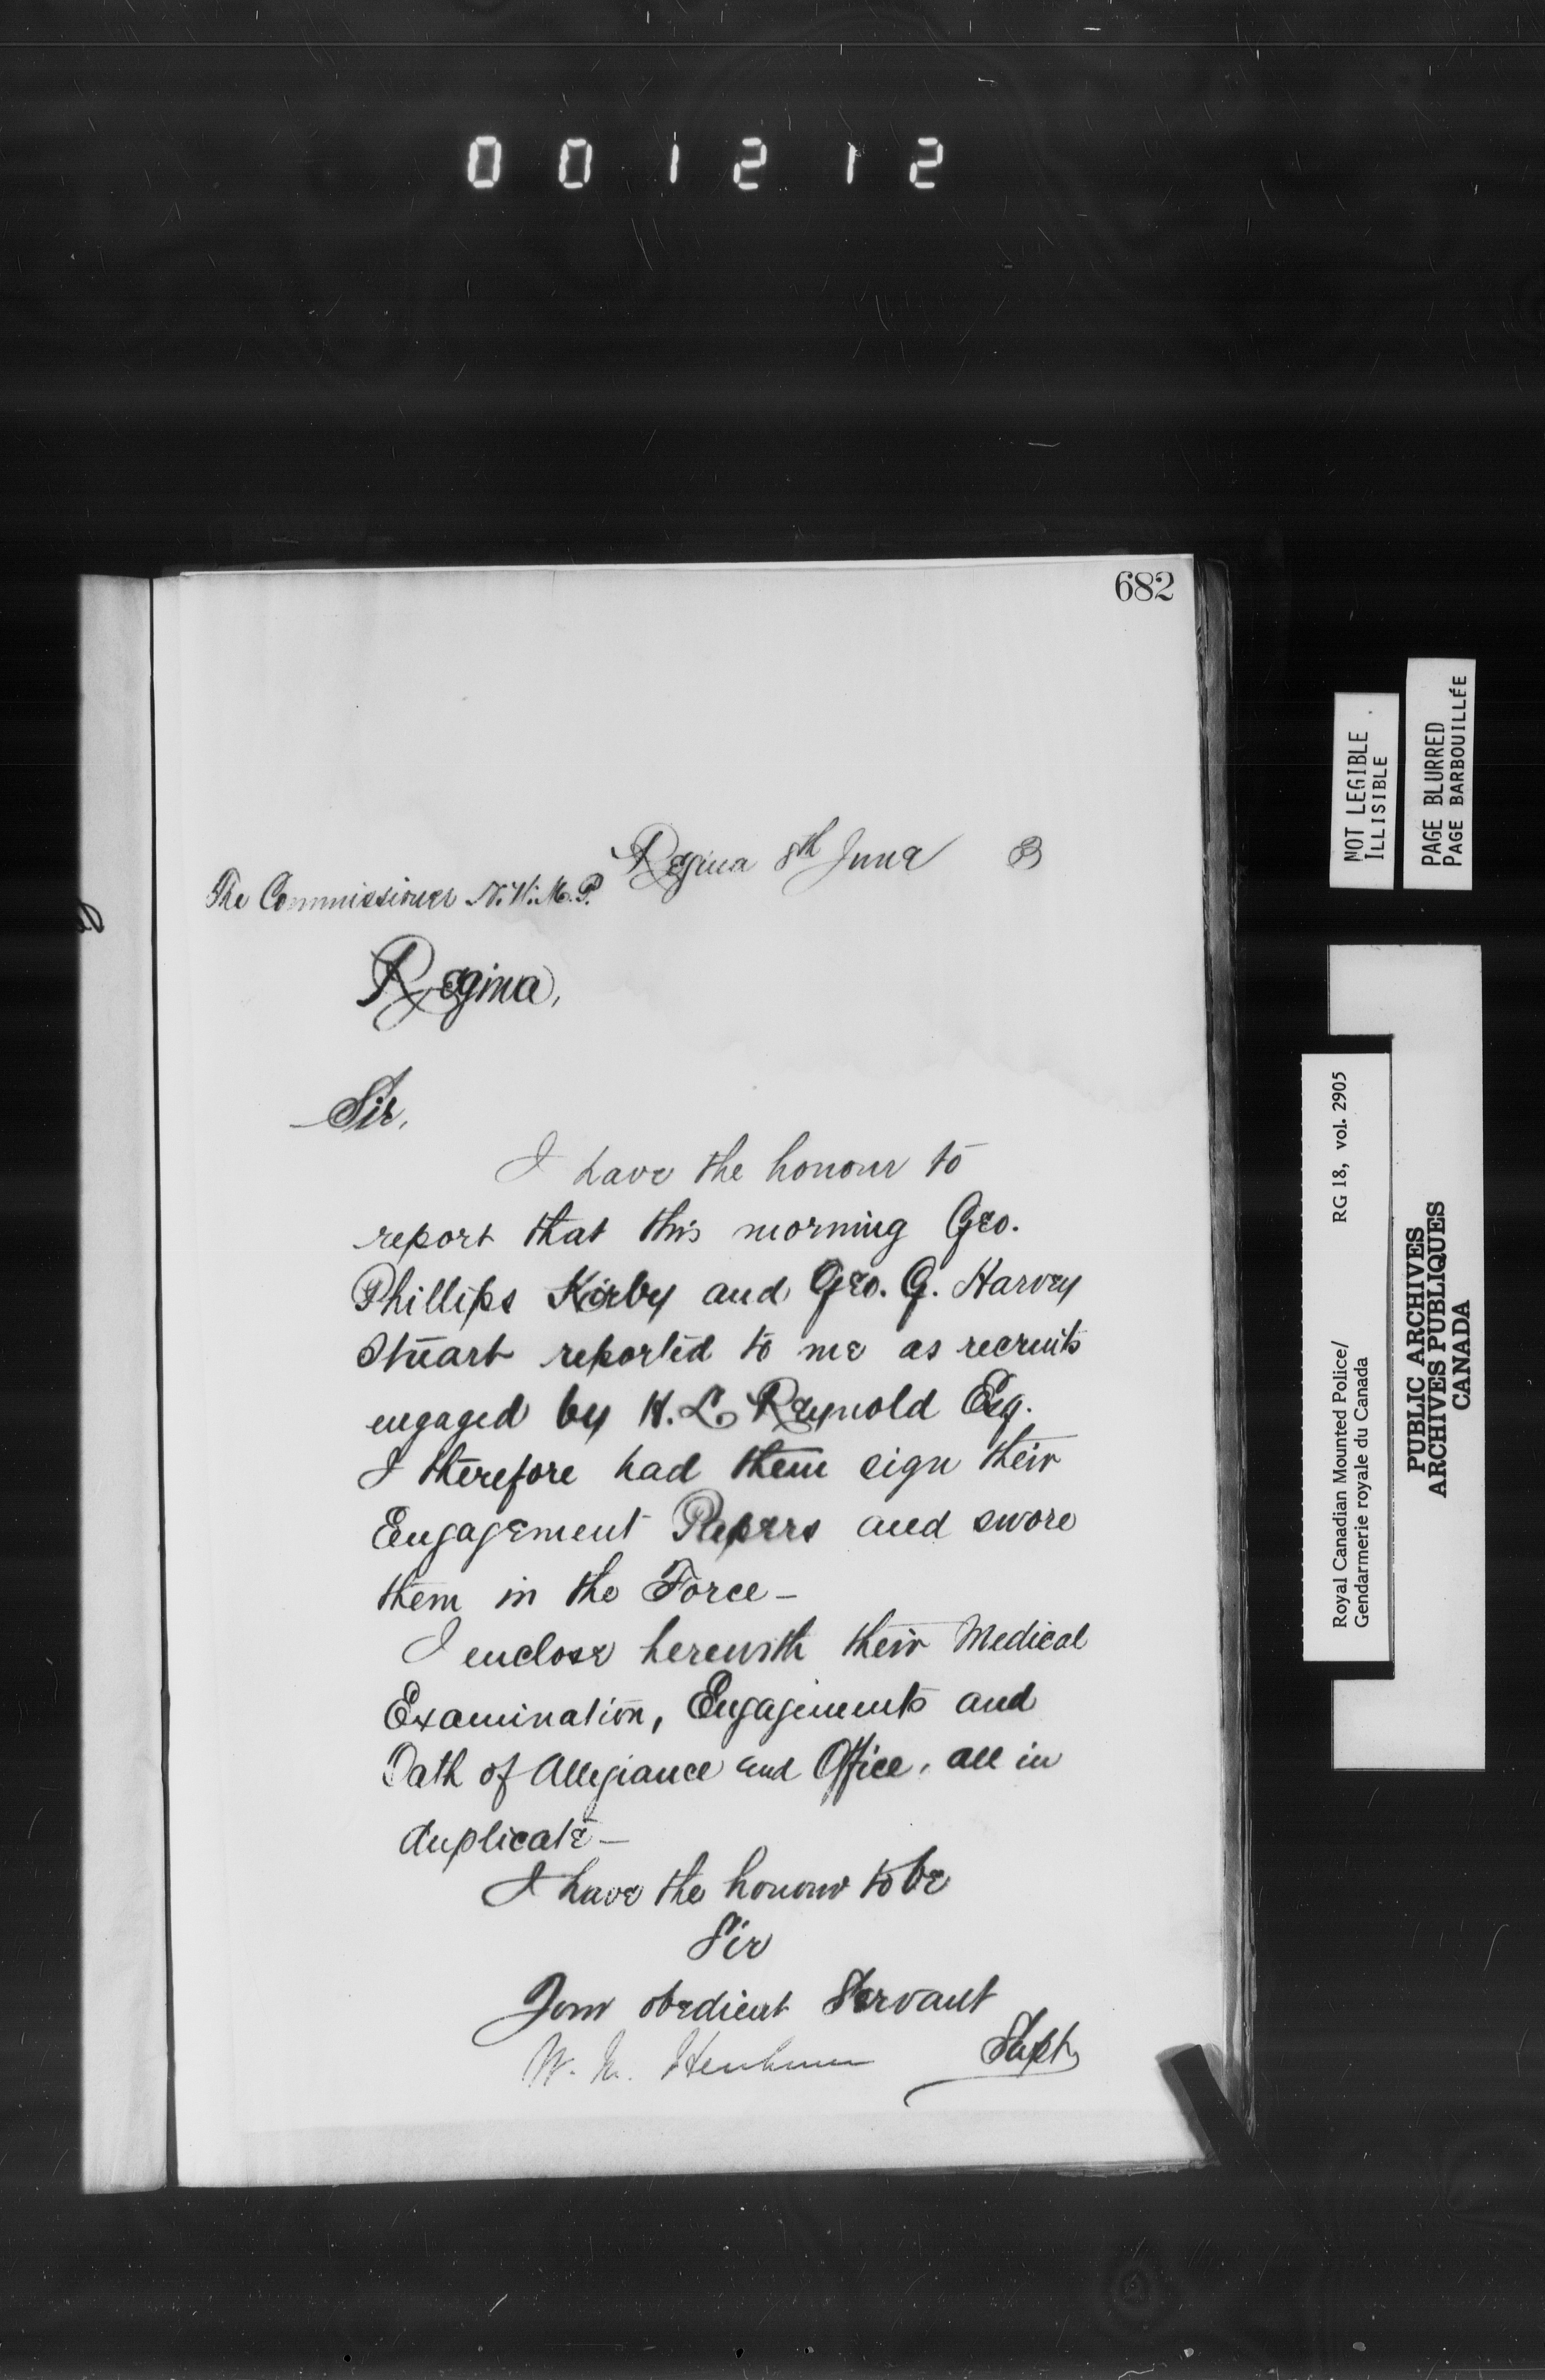 001212
682
Regina 8th June 3
The Commissioner N.W.M.P.
Regina,
Sir,
I have the honour to
report that this morning Geo.
Phillips Kirby and Geo. G. Harvey
Stuart reported to me as recruits
engaged by H. L. Reynold Esq.
I therefore had them sign their
Engagement Papers and swore
them in the Force —
I enclose herewith their Medical
Examination, Engagements and
Oath of Allegiance and Office, all in
duplicate —
I have the honour to be
Sir
Your obedient Servant
W. M.
Supt
NOT LEGIBLE
ILLISIBLE
PAGE BLURRED
PAGE BARBOUILLÉE
Royal Canadian Mounted Police/ RG 18, vol. 2905
Gendarmerie royale du Canada
PUBLIC ARCHIVES
ARCHIVES PUBLIQUES
CANADA